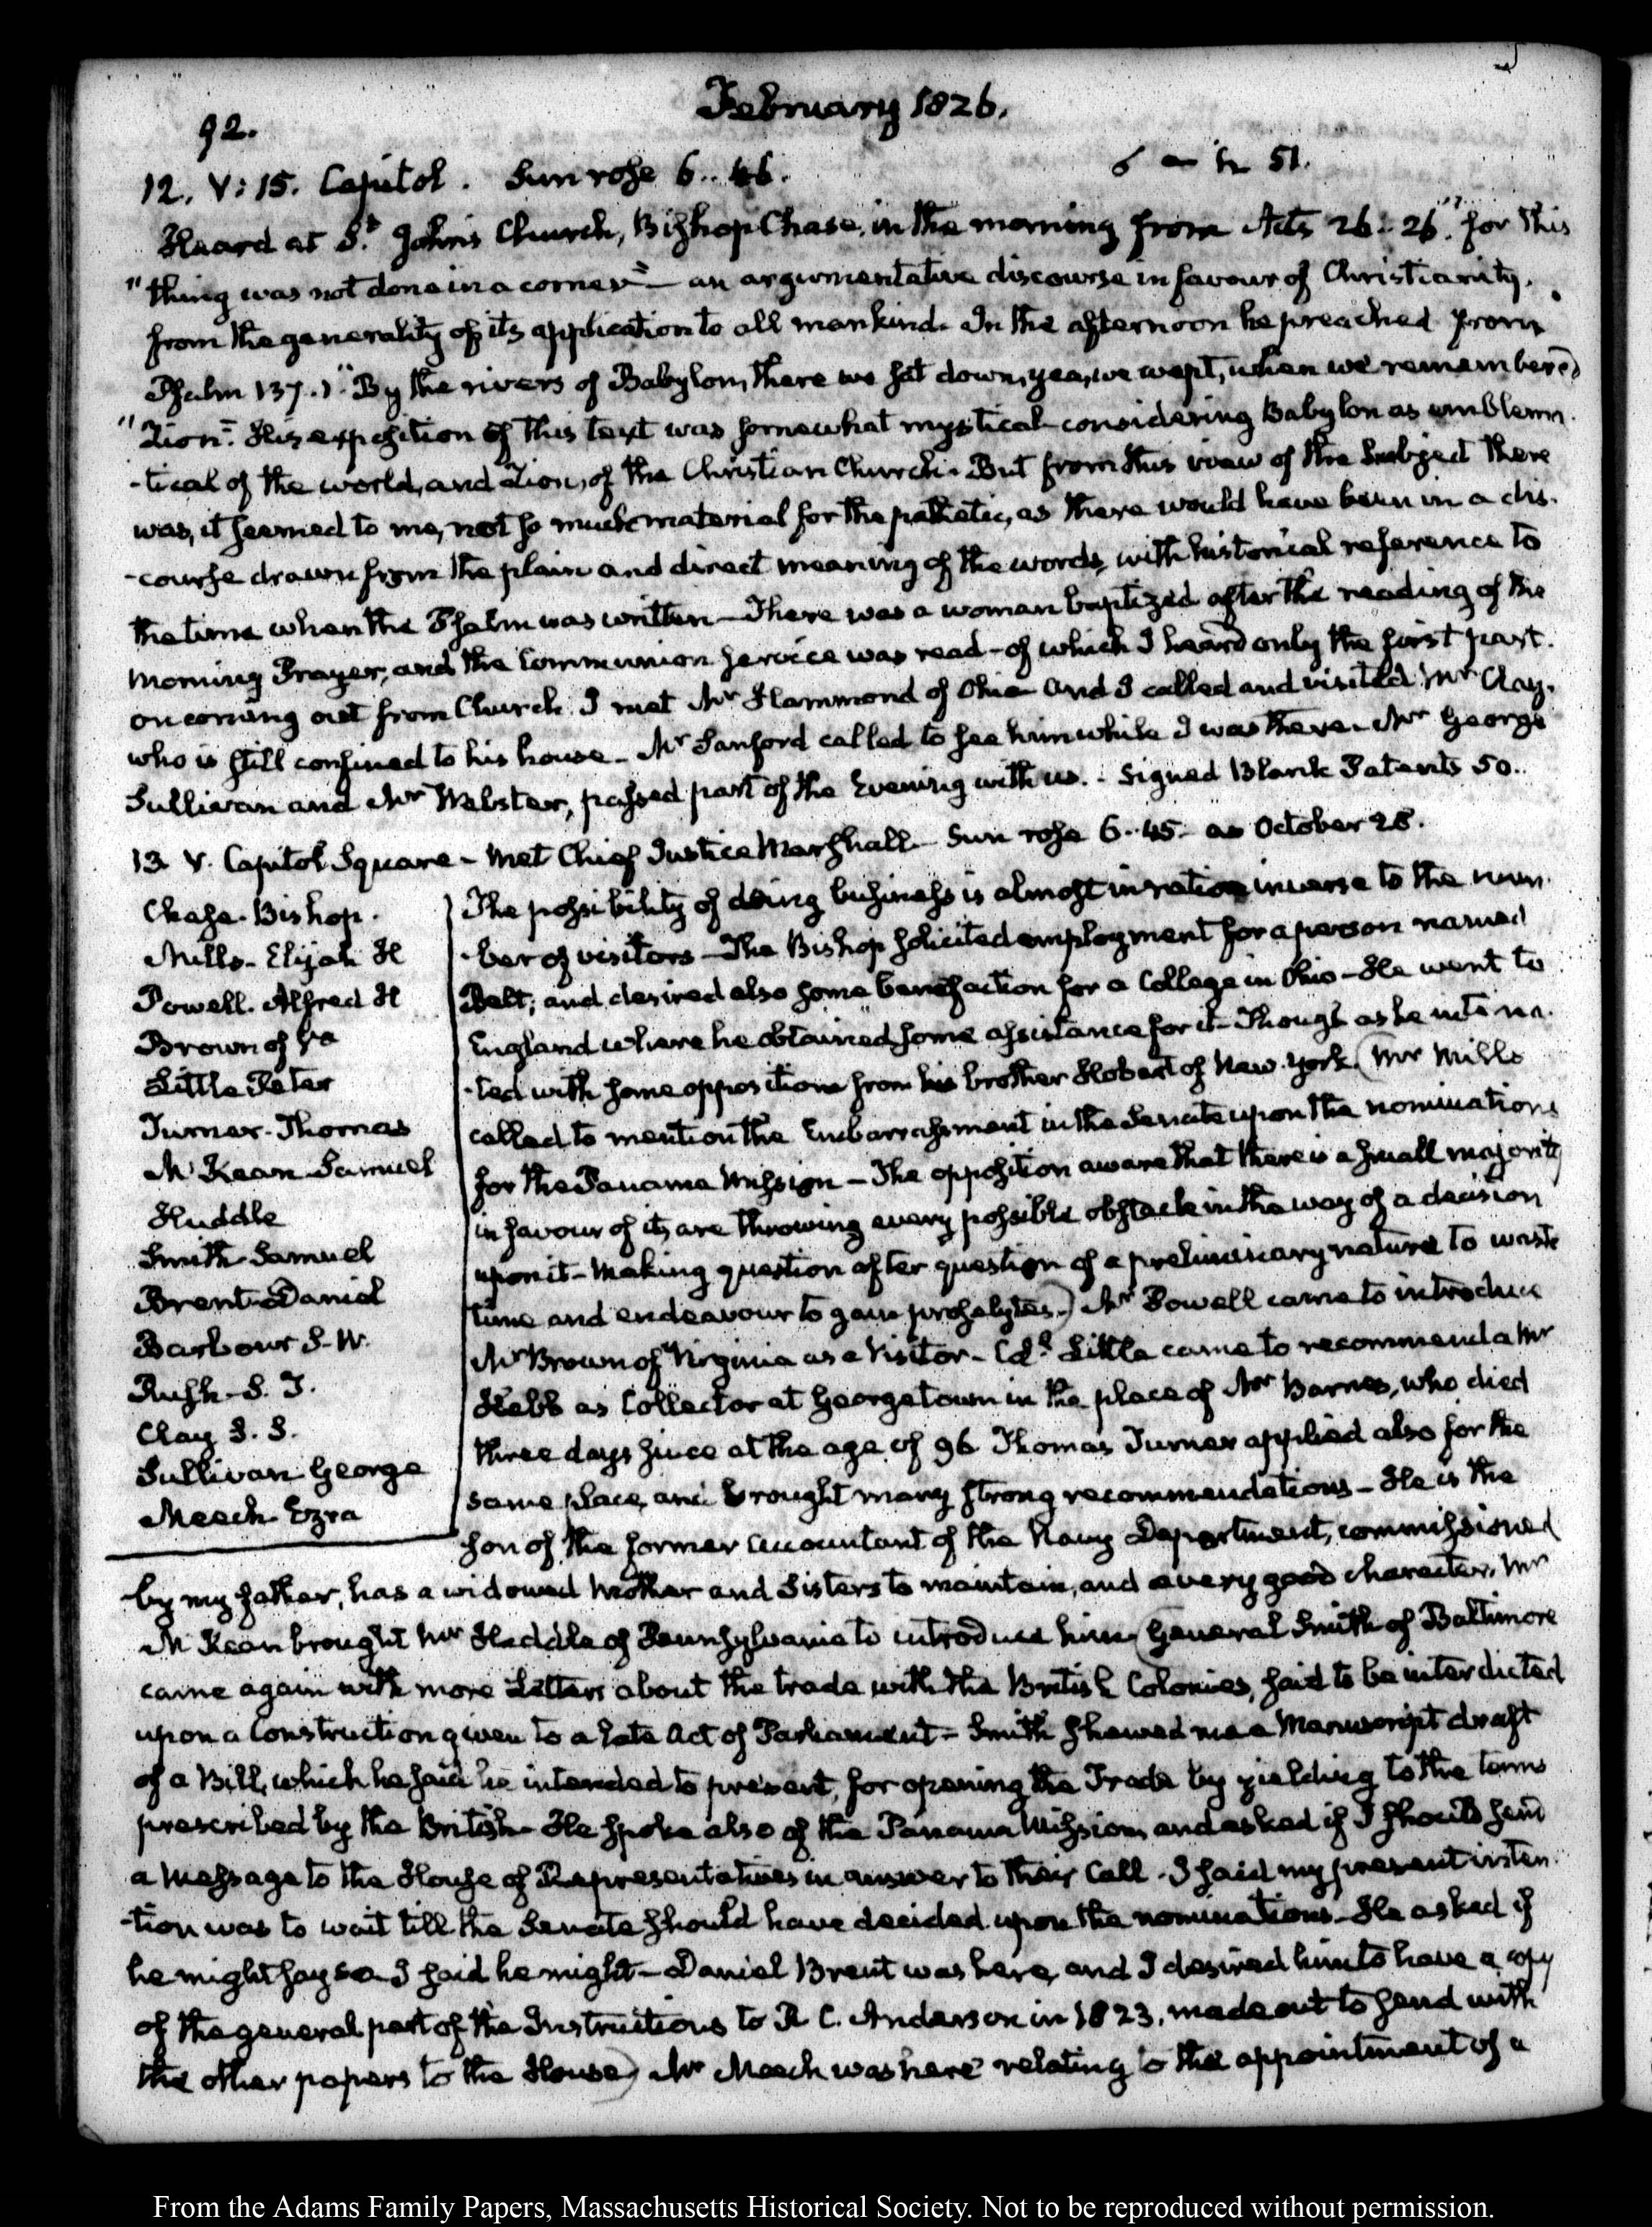 February 1826.
92.
12. V: 15. Capitol. Sun rose 6..46. 51.
Heard at St. John's Church, Bishop Chase, in the morning from Acts 26. 26. "for this
"thing was not done in a corner" — an argumentative discourse in favour of Christianity.
from the generality of its application to all mankind. In the afternoon he preached from
Psalm 137.1. "By the rivers of Babylon, there we sat down, yea, we wept, when we remembered
"Zion." His exposition of this text was somewhat mystical considering Babylon as emblema
-tical of the world, and Zion, of the Christian Church. But from this view of the subject there
was, it seemed to me, not so much material for the pathetic, as there would have been in a dis-
-course drawn from the plain and direct meaning of the words, with historical reference to
the time when the Psalm was written — There was a woman baptized after the reading of the
Morning Prayer, and the Communion service was read - of which I heard only the first part.
on coming out from Church I met Mr Hammond of Ohio and I called and visited Mr Clay.
who is still confined to his house — Mr Sanford called to see him while I was there. Mr George
Sullivan and Mr Webster, passed part of the Evening with us. - Signed Blank Patents 50..
13. V. Capitol Square - Met Chief Justice Marshall. Sun rose 6..45. as October 28.
Chase. Bishop.
Mills- Elijah H
Powell. Alfred H
Brown of Va
Little Peter
Turner- Thomas
McKean Samuel
Huddle
Smith Samuel
Brent Daniel
Barbour S- W.
Rush- S. T.
Clay S. S.
Sullivan George
Meech- Ezra
The possibility of doing business is almost in ratio inverse to the num-
-ber of visitors — The Bishop solicited employment for a person named
Belt; and desired also some benefaction for a College in Ohio — He went to
England where he obtained some assistance for it - Though as he intima-
-ted with some opposition from his brother Hobart of New-York. (Mr Mills
called to mention the Embarrassment in the Senate upon the nominations
for the Panama Mission — The opposition aware that there is a small majority
in favour of it, are throwing every possible obstacle in the way of a decision
upon it - Making question after question of a preliminary nature to waste
time and endeavour to gain proselytes.) Mr Powell came to introduce
Mr Brown of Virginia as a Visitor - Coll. Little came to recommend a Mr
Hebb as Collector at Georgetown in the place of Mr Barnes, who died
three days since at the age of 96 Thomas Turner applied also for the
same place, and brought many strong recommendations — He is the
son of the former accountant of the Navy Department, commissioned
by my father, has a widowed Mother and Sisters to maintain, and a very good character. Mr
McKean brought Mr Huddle of Pennsylvania to introduce him. (General Smith of Baltimore
came again with more Letters about the trade with the British Colonies, said to be interdicted
upon a Construction given to a late Act of Parliament - Smith shewed me a Manuscript draft
of a Bill, which he said he intended to present, for opening the Trade by yielding to the terms
prescribed by the British - He spoke also of the Panama Mission, and asked if I should send
a Message to the House of Representatives in answer to their Call. I said my present inten-
-tion was to wait till the Senate should have decided upon the nominations - He asked if
he might say so - I said he might - Daniel Brent was here, and I desired him to have a copy
of the general part of the Instructions to R. C. Anderson in 1823, made out to send with
the other papers to the House) Mr Meech was here relating to the appointment of a
From the Adams Family Papers, Massachusetts Historical Society. Not to be reproduced without permission.